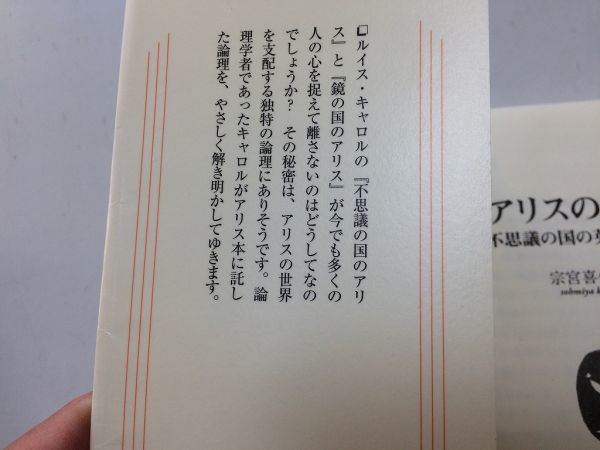 ❏ルイス・キャロルの『不思議の国のアリ
ス』と『鏡の国のアリス』が今でも多くの
人の心を捉えて離さないのはどうしてなの
でしょうか? その秘密は、アリスの世界
を支配する独特の論理にありそうです。論
理学者であったキャロルがアリス本に託し
た論理を、やさしく解き明かしてゆきます。
アリスの
不思議の国の
宗宮喜
sohmiya k